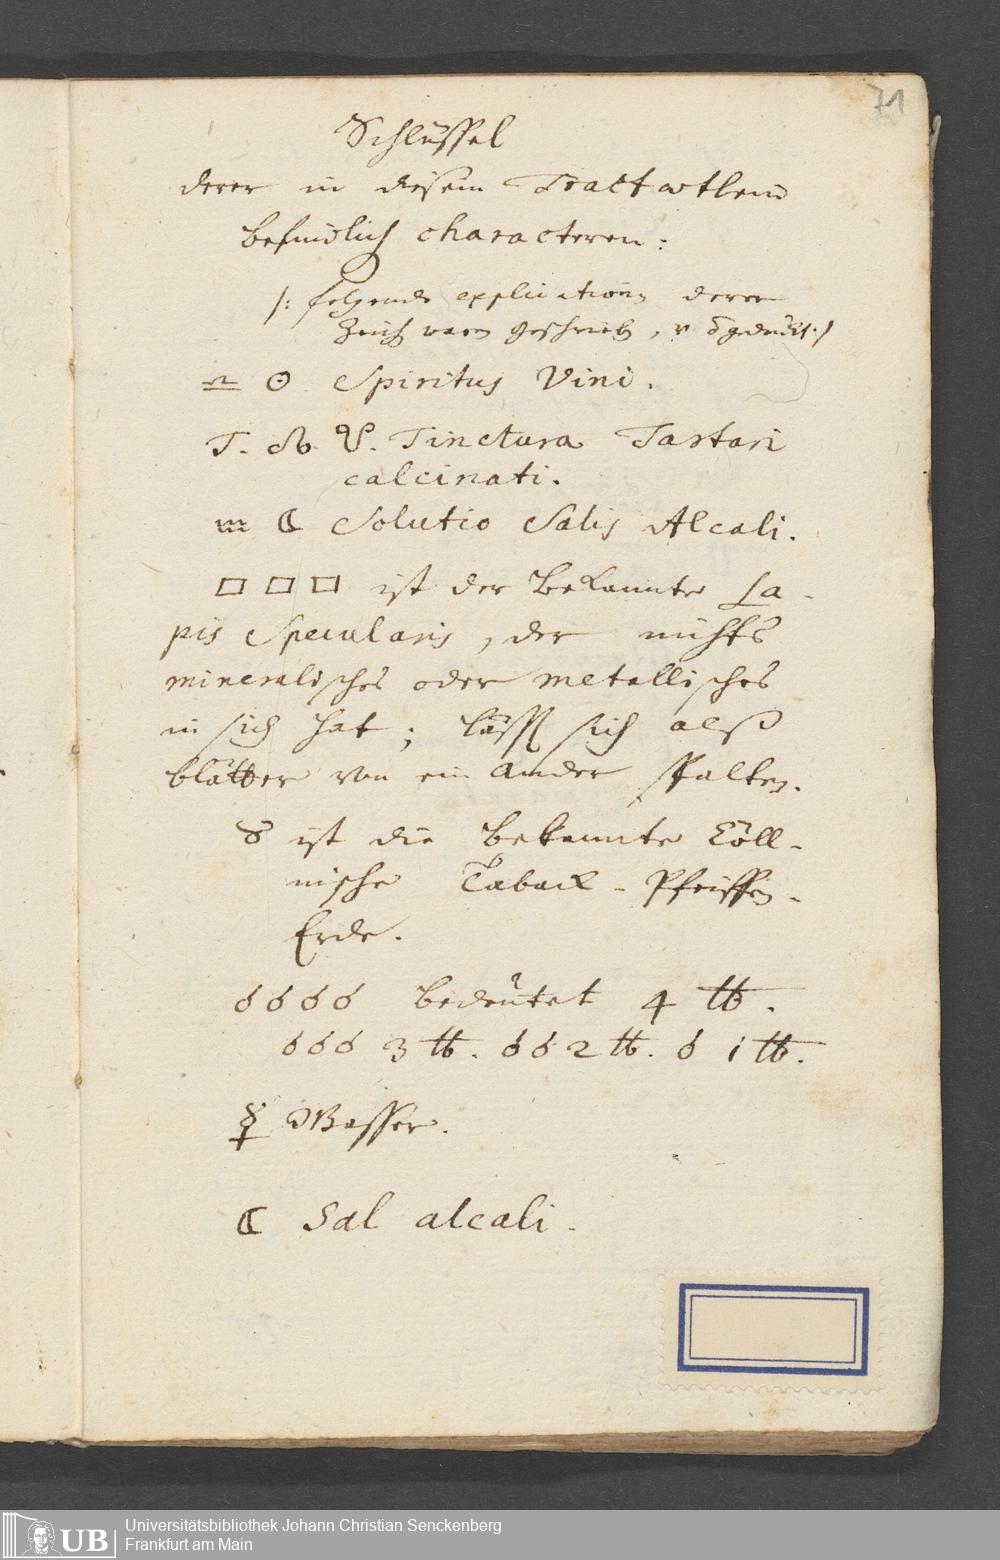 71
Schlüssel
derer in diesem Tractætlein
befindlich characteren:
/: folgende explicationes derer
Zeich waren geschrieb,
♎ ☉ Spiritus Vini.
T. Tinctura Tartari
calcinati.
♏ ☾ Solutio Salis Alcali.
□ □ □ ist der bekannte La-
pis Specularis, der nichts
mineralisches oder metallisches
in sich hat; läßt sich alß
blätter von ein ander spalten.
♉ ist die bekannte Cöll-
nische Taback-Pfeiffen-
Erde.
♁♁♁♁ bedeutet 4 ℔.
♁♁♁ 3 ℔. ♁♁ 2 ℔. ♁ 1 ℔.
☿ Wasser.
☾ Sal alcali.
UB
Universitätsbibliothek Johann Christian Senckenberg
Frankfurt am Main